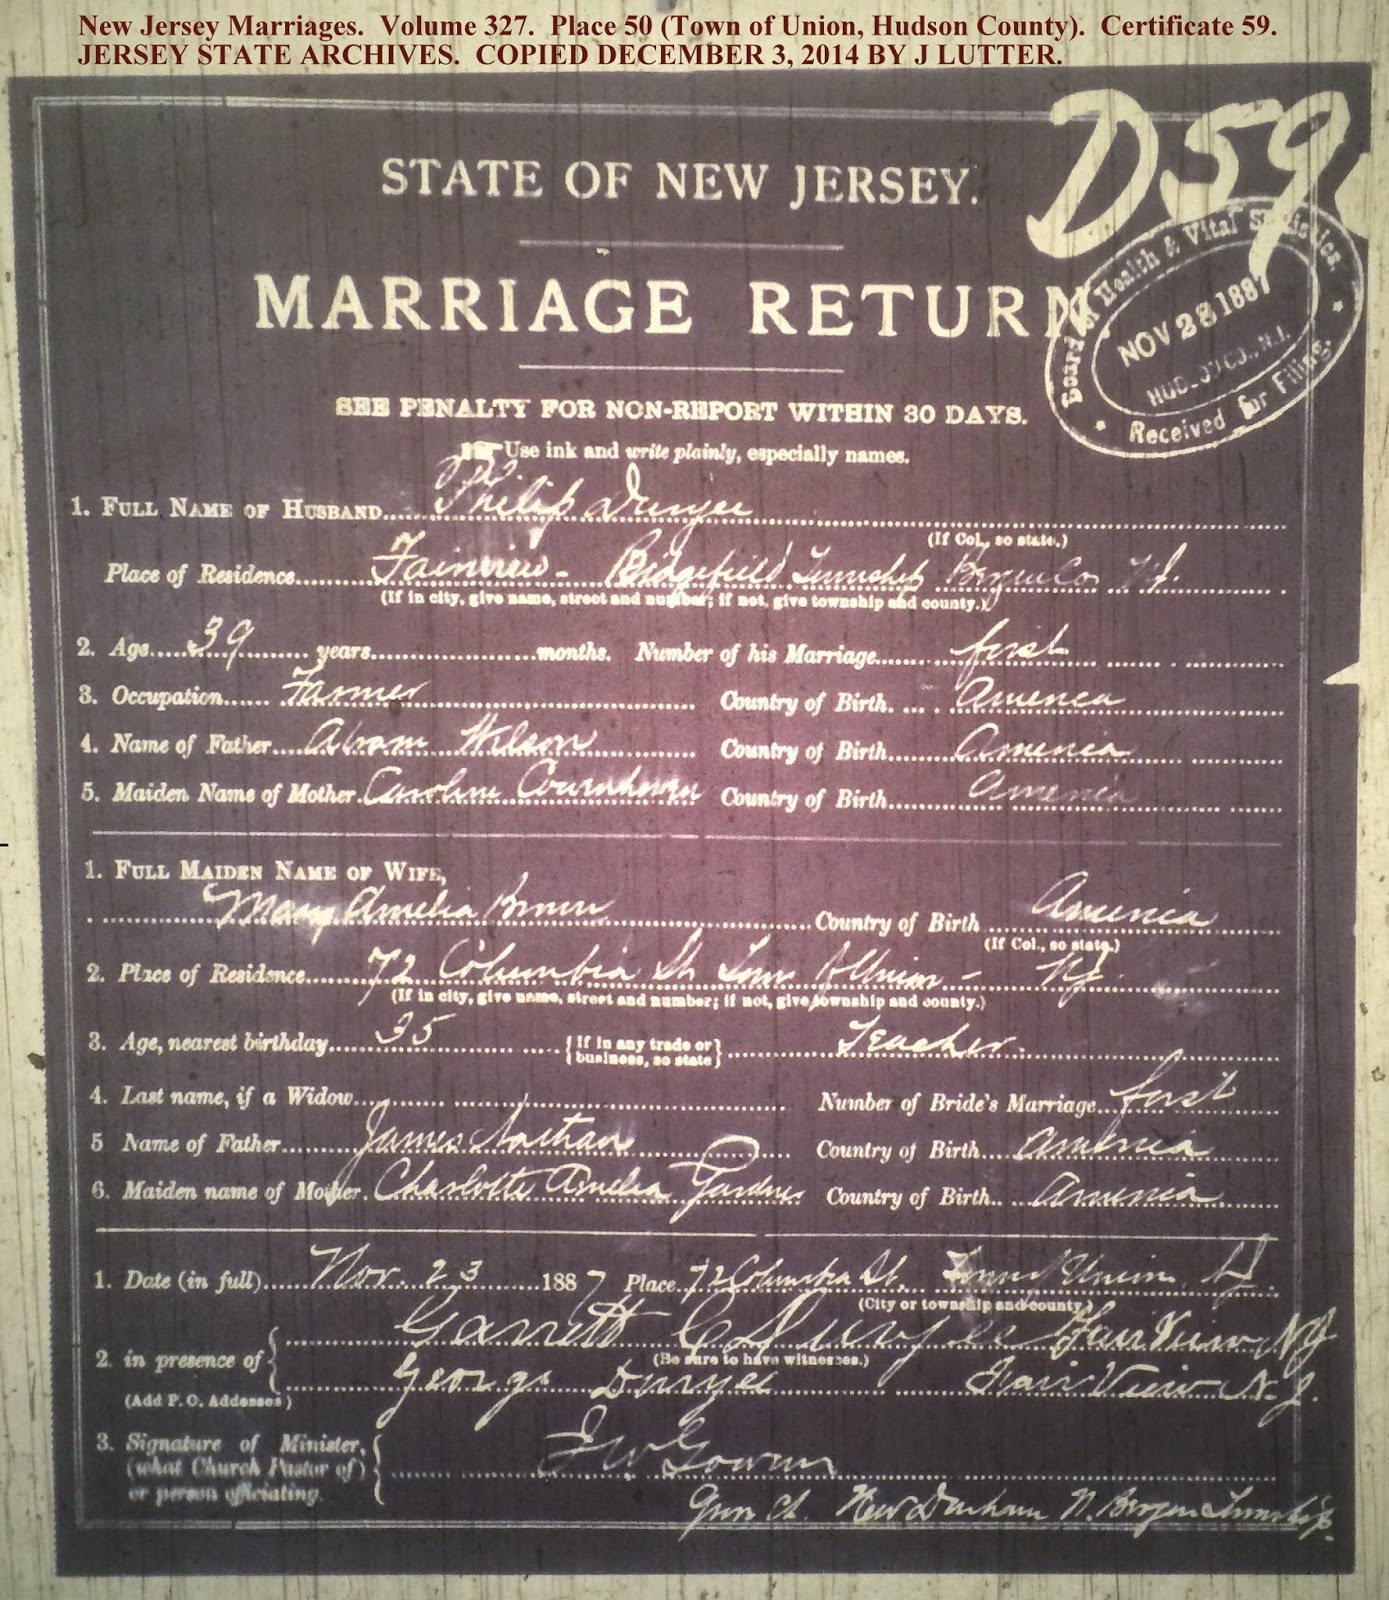 New Jersey Marriages. Volume 327. Place 50 (Town of Union, Hudson County). Certificate 59.
JERSEY STATE ARCHIVES. COPIED DECEMBER 3, 2014 BY J LUTTER.
D59
STATE OF NEW JERSEY.
MARRIAGE RETURN
Board of Health & Vital Statistics.
NOV 28 1887
HUDSON CO., N.J.
Received for Filing.
SEE PENALTY FOR NON-REPORT WITHIN 30 DAYS.
Use ink and write plainly, especially names.
1. FULL NAME OF HUSBAND Philip Duryee
(If Col., so state.)
Place of Residence Fairview - Ridgefield Township Bergen Co N.J.
(If in city, give name, street and number; if not, give township and county.)
2. Age 39 years months. Number of his Marriage first
3. Occupation Farmer Country of Birth America
4. Name of Father Abram Wilson Country of Birth America
5. Maiden Name of Mother Caroline Country of Birth America
1. FULL MAIDEN NAME OF WIFE,
Mary Amelia Brown Country of Birth America
(If Col., so state.)
2. Place of Residence 72 Columbia St Town of Union - NJ.
(If in city, give name, street and number; if not, give township and county.)
3. Age, nearest birthday 35 {If in any trade or business, so state} Teacher
4. Last name, if a Widow Number of Bride's Marriage first
5 Name of Father James Nathan Country of Birth America
6. Maiden name of Mother Charlotte Amelia Gardner Country of Birth America
1. Date (in full) Nov. 23 1887 Place 72 Columbia St. Town of Union NJ
(City or township and county.)
2. in presence of { Garrett C Duryee Fair View NJ
(Be sure to have witnesses.)
George Duryee Fair View N.J.
(Add P. O. Addesses)
3. Signature of Minister, (what Church Pastor of) or person officiating.
New Durham N. Bergen Township